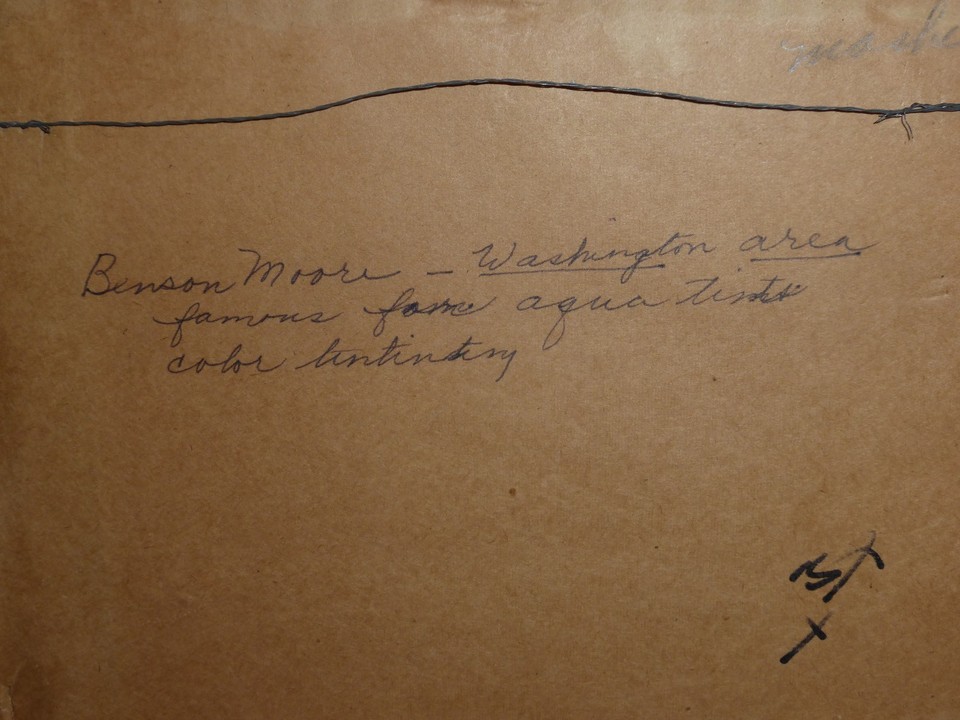 Benson Moore – Washington area
famous for aqua tints
color tintinting